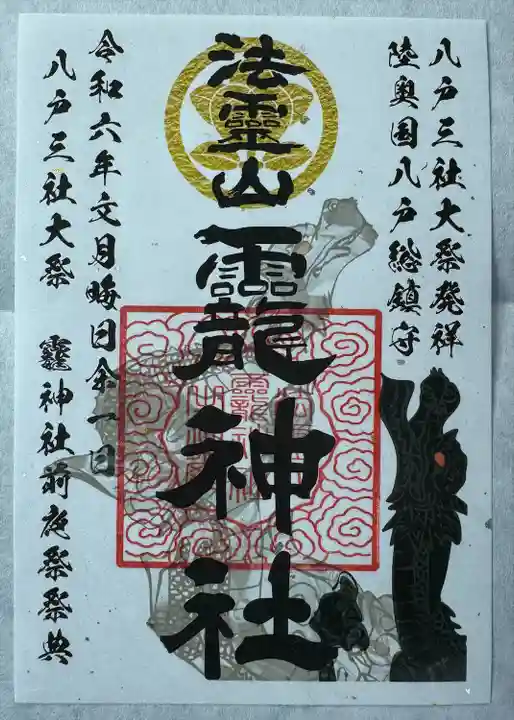 八戸三社大祭発祥
陸奥国八戸総鎮守
法霊山
龗神社
令和六年文月晦日余一日
八戸三社大祭　龗神社前夜祭祭典